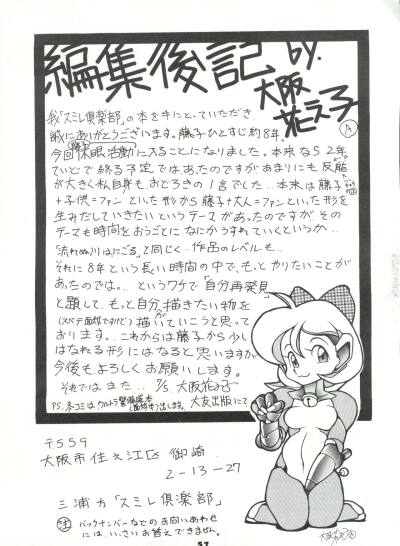 編集後記 by. 大阪花え子
我「スミレ倶楽部」の本を手にとっていただき
誠にありがとうございます。藤子ひとすじ約8年。
今回休眠活動に入ることになりました。本来なら2年
ていどで終る予定ではあったのですがあまりにも反応
が大きく私自身もおどろきの1言でした…本来は藤子
+子供=ファンといった形から藤子+大人=ファンといった形を
生みだしていきたいというテーマがあったのですが、その
テーマも時間をおうごとに、なにかうすれていくというか…
「流れぬ川はにごる」と同じく…作品のレベルも…
それに8年という長い時間の中で、もっとやりたいことが
あったのでは。というワケで「自分再発見」
と題して、もっと自分描きたい物を
(スベテ面娯ですけど)描いていこうと思って
おります。これからは藤子から少し
はなれる形にはなると思いますが
今後もよろしくお願いします。
それではまた… 大阪花え子
P.S. 冬コミはウルトラ警備隊本 出します。大友出版にて
〒559
大阪市住之江区 御崎
2-13-27
三浦方「スミレ倶楽部」
注 バックナンバーなどのお問いあわせ
には、いっさいお答えできません。
57